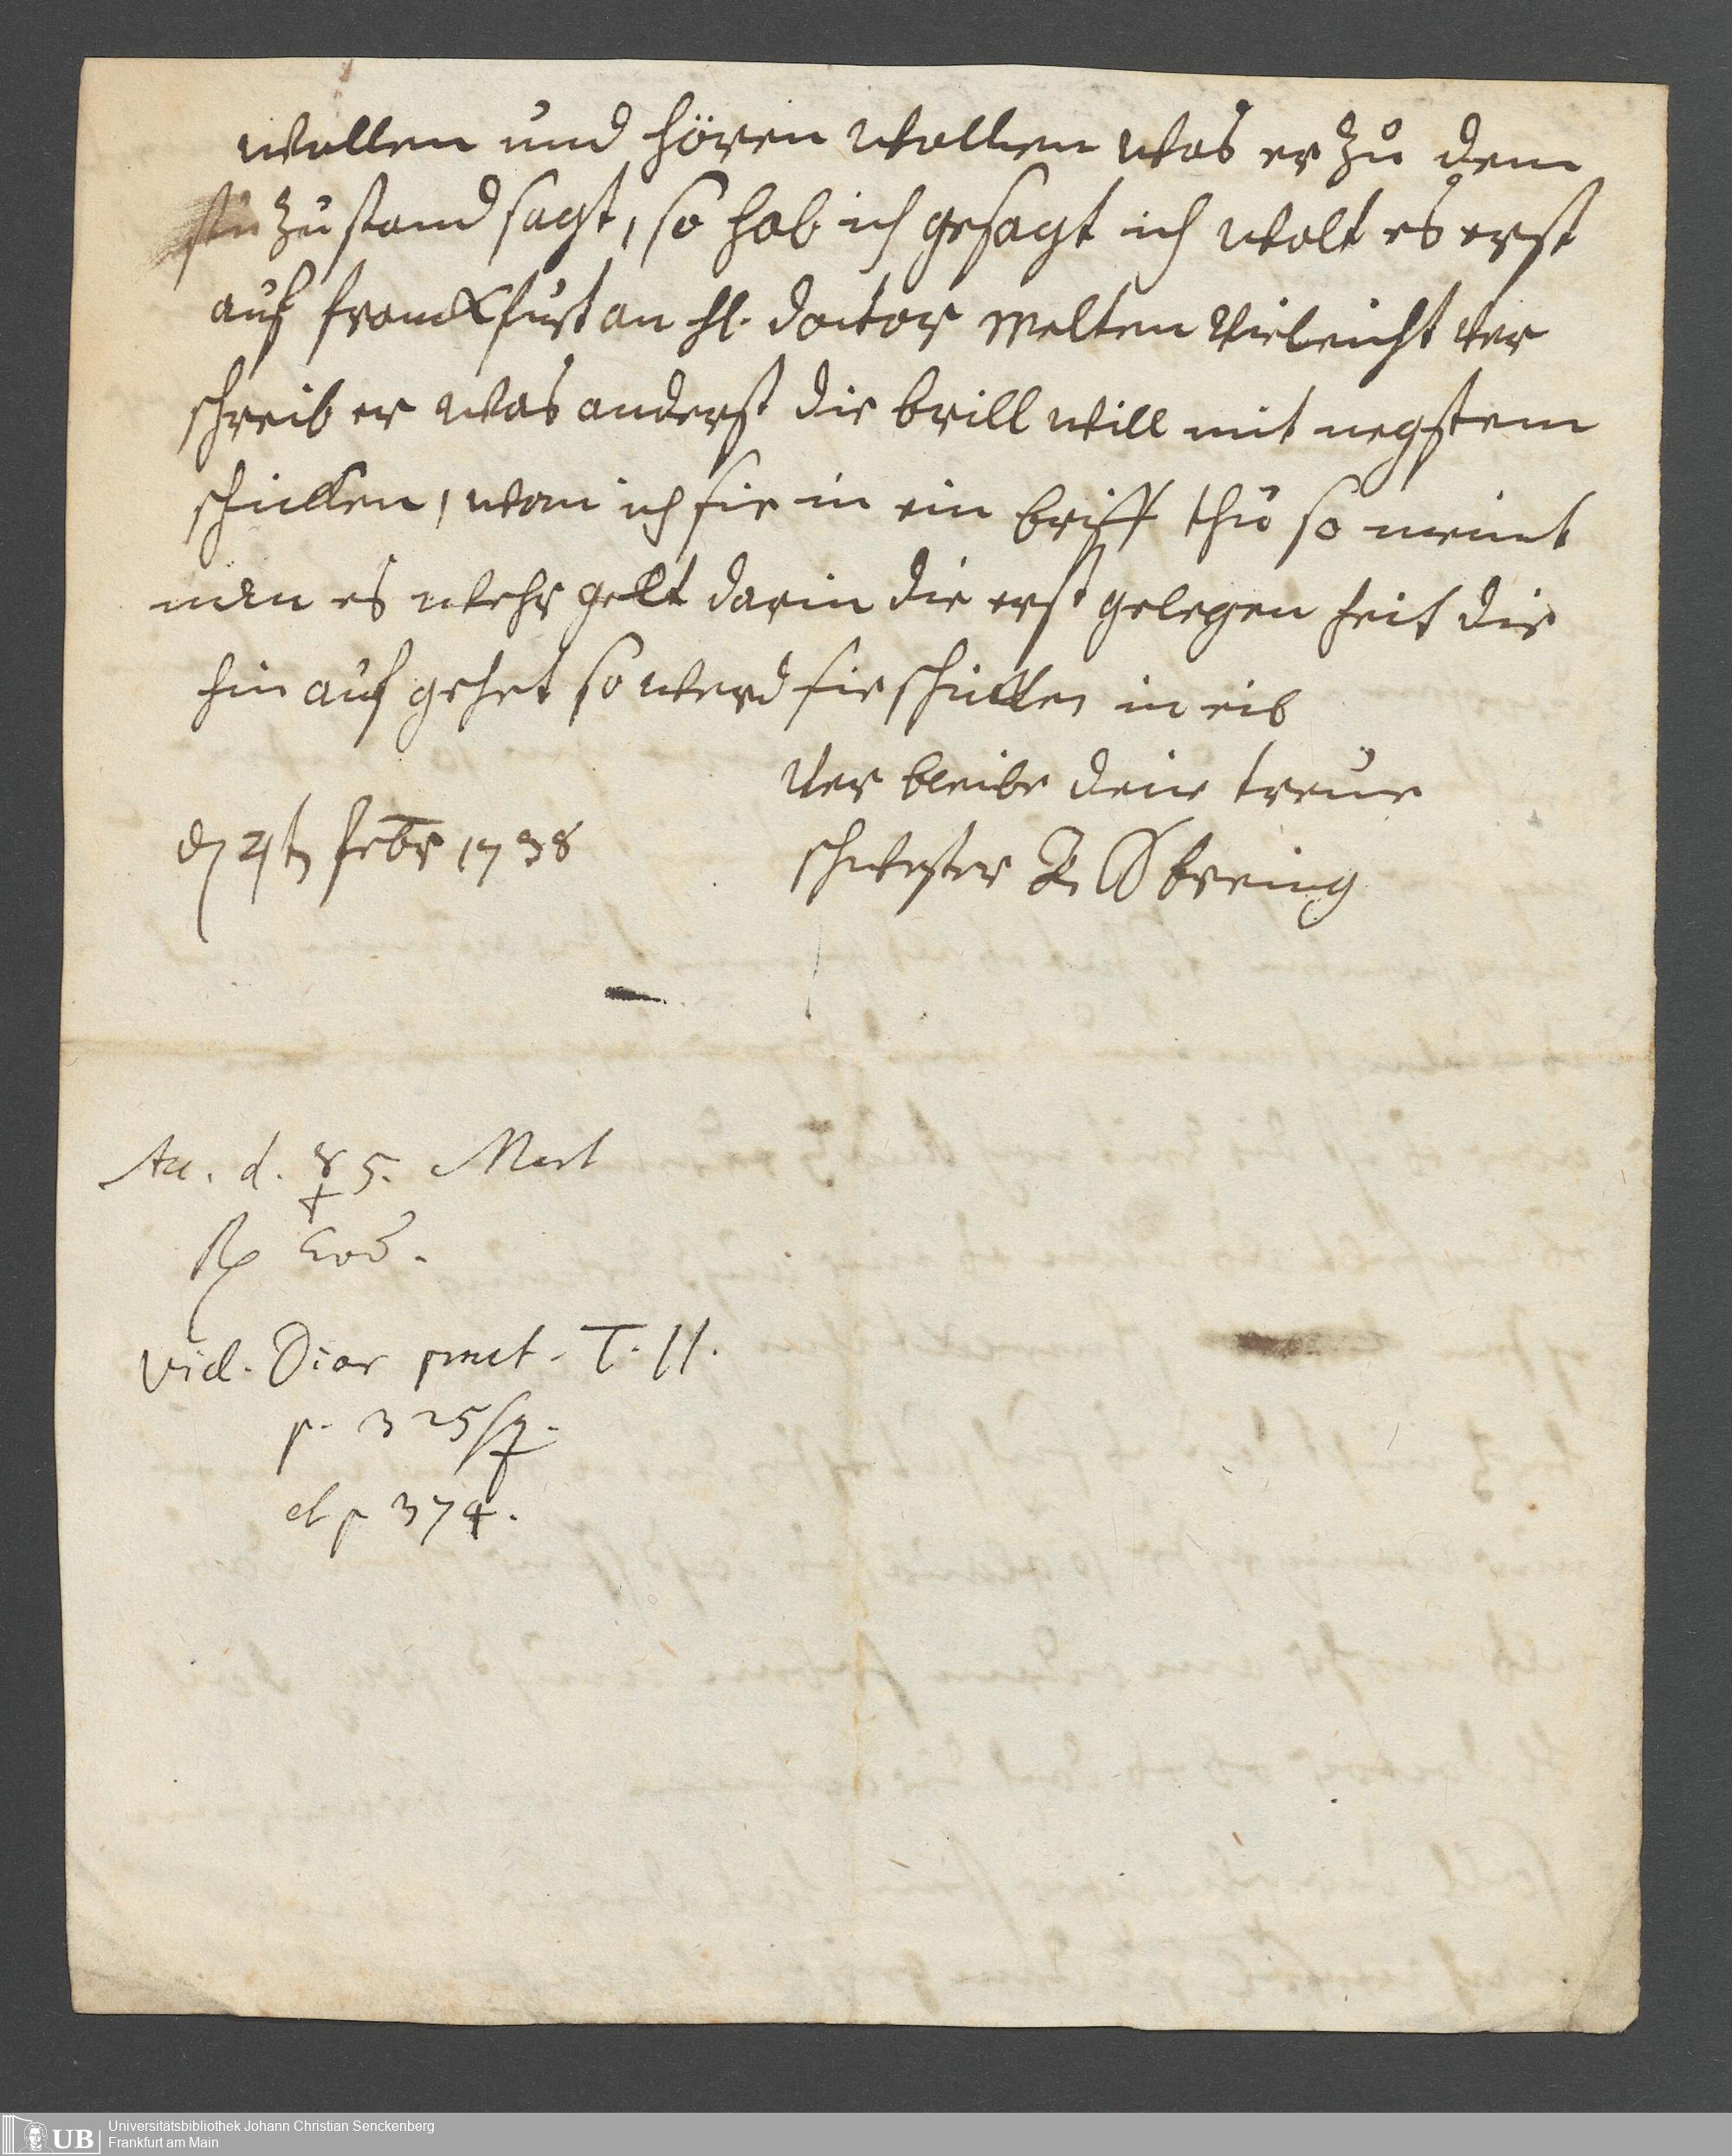 wollen und hören wollen was er zu dem
zustand sagt, so hab ich gesagt ich wolt es erst
auf franckfurt an H. doctor melten vieleicht ver
schreib er was anderst die brill will mit negstem
schicken, wan ich sie in ein briff thu so meint
man es wehr gelt darin die erst gelegen heit die
hin auf gehet so werd sie schicken in eil
ver bleibe deine treue
schwester
febr 1738
Acc. d. 5. Mart
Rp eod.
vid. Diar pract. T. II.
p. 325 sq.
et p 374.
Universitätsbibliothek Johann Christian Senckenberg
UB Frankfurt am Main